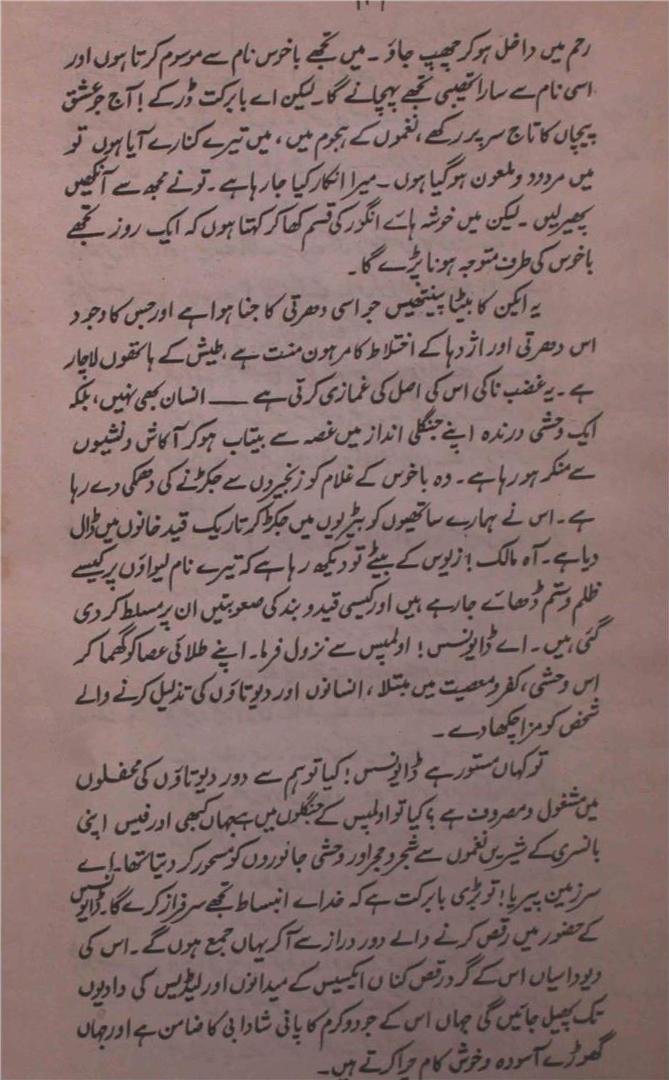 رحم میں داخل ہو کر چھپ جاؤ ۔ میں تجھے باخوس نام سے موسوم کرتا ہوں اور
اسی نام سے سارا تھیبی تجھے پہچانے گا۔ لیکن اے بابرکت ڈرکے! آج جو عشق
پیچاں کا تاج سر پر رکھے، نغموں کے ہجوم میں، میں تیرے کنارے آیا ہوں تو
میں مردود و ملعون ہو گیا ہوں ۔ میرا انکار کیا جا رہا ہے ۔ تو نے مجھ سے آنکھیں
پھیر لیں ۔ لیکن میں خوشہ ہائے انگور کی قسم کھا کر کہتا ہوں کہ ایک روز تجھے
باخوس کی طرف متوجہ ہونا پڑے گا ۔
یہ ایکن کا بیٹا پینتھیس جو اسی دھرتی کا جنا ہوا ہے اور جس کا وجود
اس دھرتی اور اژدہا کے اختلاط کا مرہون منت ہے، طیش کے ہاتھوں لاچار
ہے ۔ یہ غضب ناکی اس کی اصل کی غمازی کرتی ہے ـــ انسان بھی نہیں، بلکہ
ایک وحشی درندہ اپنے جنگلی انداز میں غصہ سے بیتاب ہو کر آکاش ونشیوں
سے منکر ہو رہا ہے ۔ وہ باخوس کے غلام کو زنجیروں سے جکڑنے کی دھمکی دے رہا
ہے ۔ اس نے ہمارے ساتھیوں کو بیڑیوں میں جکڑ کر تاریک قید خانوں میں ڈال
دیا ہے ۔ آہ مالک! زیوس کے بیٹے تو دیکھ رہا ہے کہ تیرے نام لیواؤں پر کیسے
ظلم و ستم ڈھائے جا رہے ہیں اور کیسی قید و بند کی صعوبتیں ان پر مسلط کر دی
گئی ہیں ۔ اے ڈایونسس! اولمپس سے نزول فرما ۔ اپنے طلائی عصا کو گھما کر
اس وحشی، کفر و معصیت میں مبتلا، انسانوں اور دیوتاؤں کی تذلیل کرنے والے
شخص کو مزا چکھا دے ۔
تو کہاں مستور ہے ڈایونسس! کیا تو ہم سے دور دیوتاؤں کی محفلوں
میں مشغول و مصروف ہے؟ کیا تو اولمپس کے جنگلوں میں ہے جہاں کبھی اورفیس اپنی
بانسری کے شیریں نغموں سے شجر و حجر اور وحشی جانوروں کو مسحور کر دیتا تھا۔ اے
سرزمین پیریا! تو بڑی بابرکت ہے کہ خدائے انبساط تجھے سرفراز کرے گا۔ ڈایونسس
کے حضور میں رقص کرنے والے دور دراز سے آ کر یہاں جمع ہوں گے ۔ اس کی
دیوداسیاں اس کے گرد رقص کناں ایکسیس کے میدانوں اور لیڈیس کی وادیوں
تک پھیل جائیں گی جہاں اس کے جود و کرم کا پانی شادابی کا ضامن ہے اور جہاں
گھوڑے آسودہ و خوش کام چرا کرتے ہیں ۔